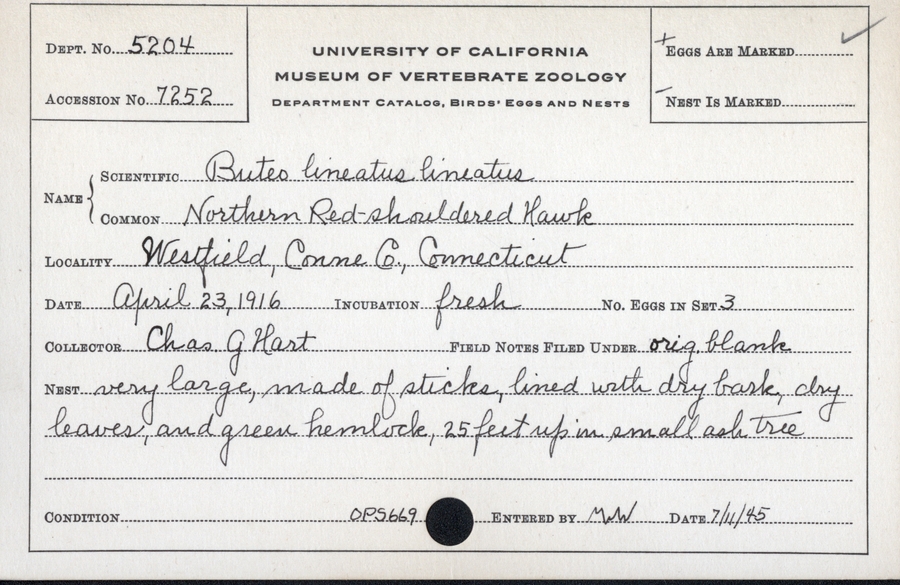 DEPT. No. 5204
ACCESSION No. 7252
UNIVERSITY OF CALIFORNIA
MUSEUM OF VERTEBRATE ZOOLOGY
DEPARTMENT CATALOG, BIRDS' EGGS AND NESTS
+ EGGS ARE MARKED ✓
- NEST IS MARKED
NAME { SCIENTIFIC Buteo lineatus lineatus
COMMON Northern Red-shouldered Hawk
LOCALITY Westfield, Conne Co., Connecticut
DATE April 23, 1916 INCUBATION fresh No. EGGS IN SET 3
COLLECTOR Chas. G Hart FIELD NOTES FILED UNDER orig. blank
NEST very large, made of sticks, lined with dry bark, dry
leaves, and green hemlock, 25 feet up in small ash tree
CONDITION OPS669 ENTERED BY MW DATE 7/11/45